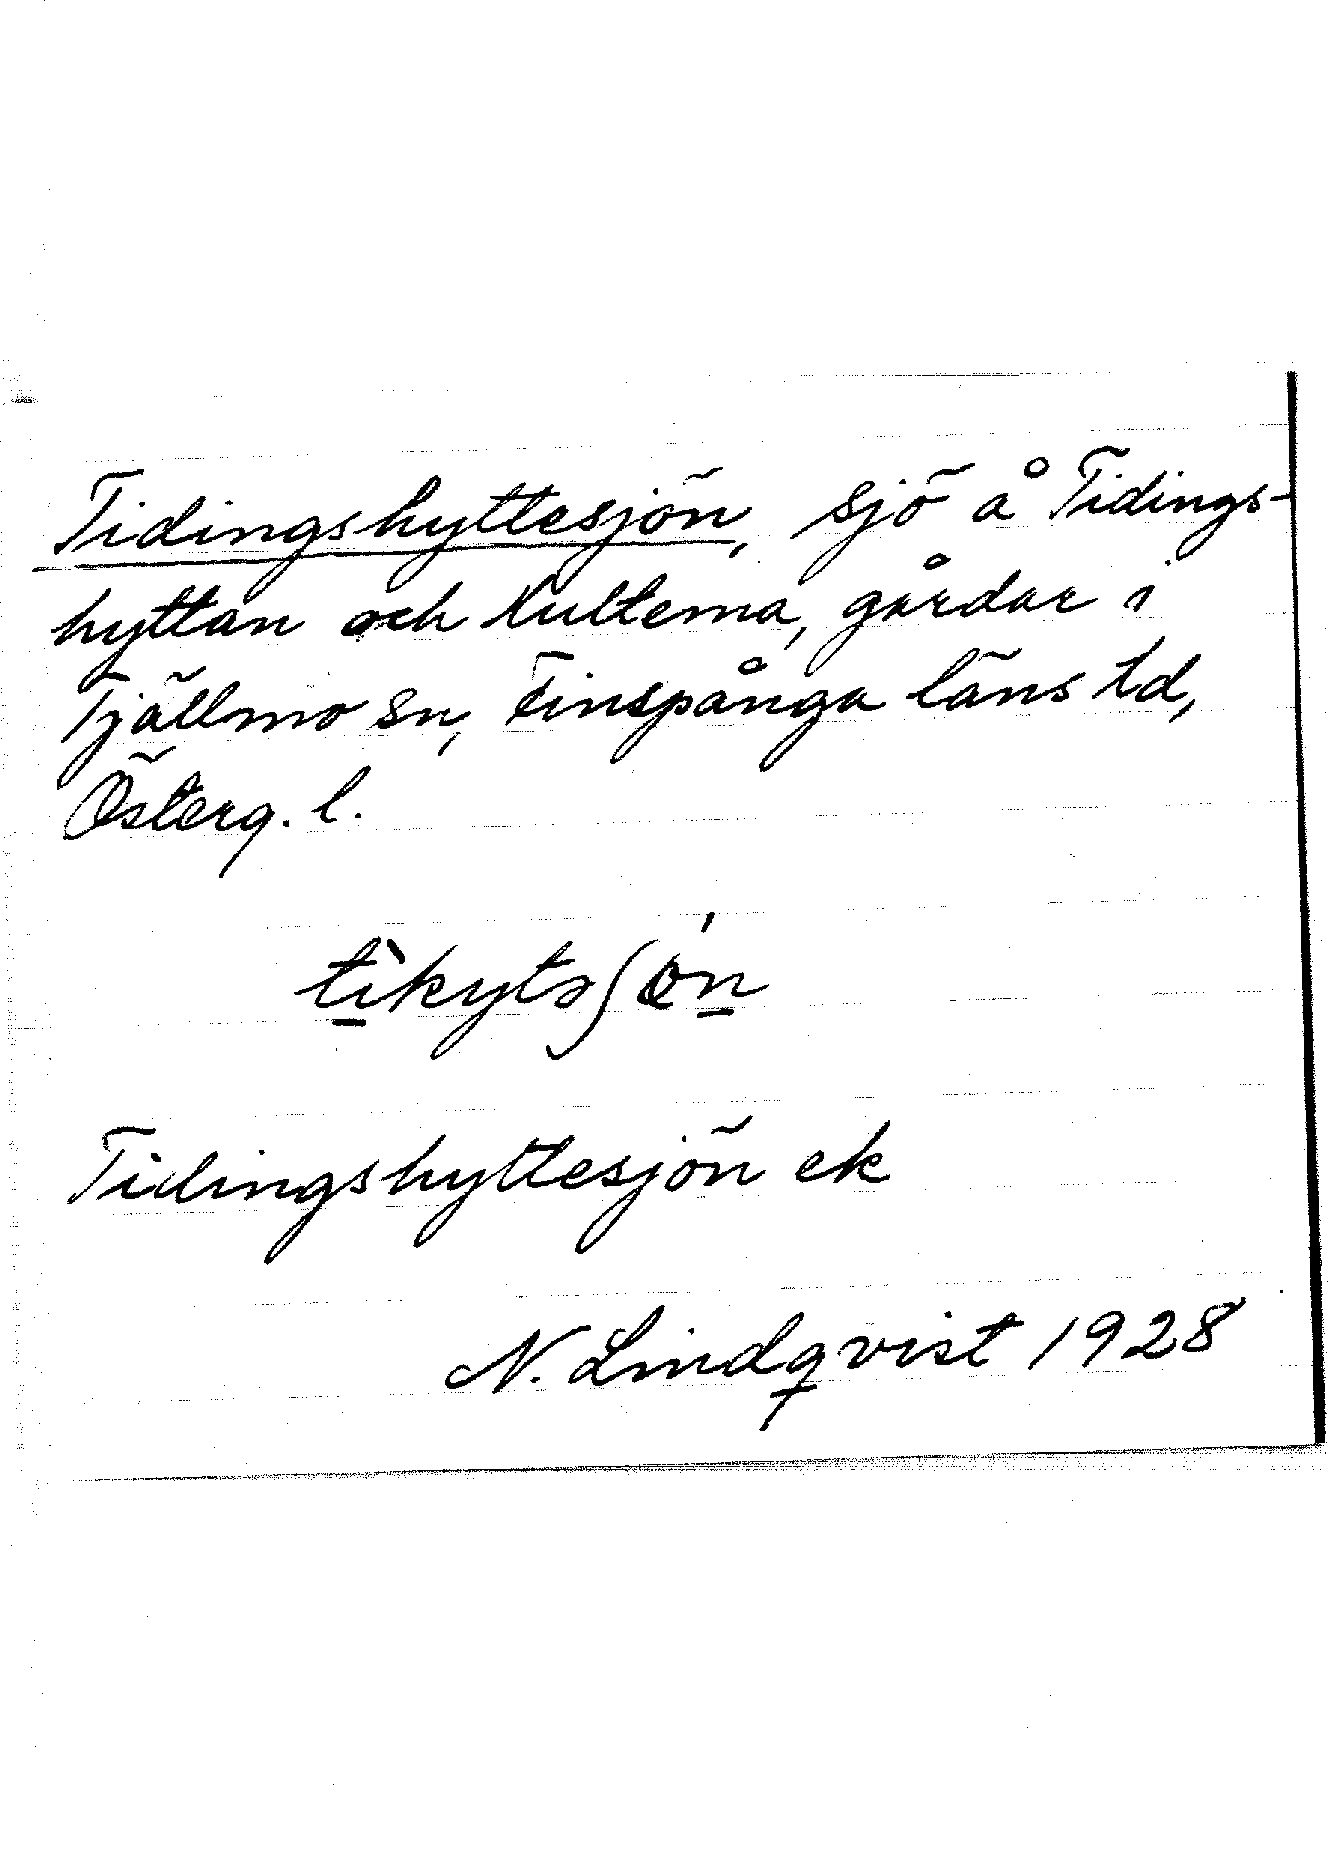 Tidingshyttesjön, sjö å Tidings-
hyttan och Hultema, gårdar i
Tjällmo sn, Finspånga läns hd,
Österg. l.
Tidingshyttesjön ek
N. Lindqvist 1928